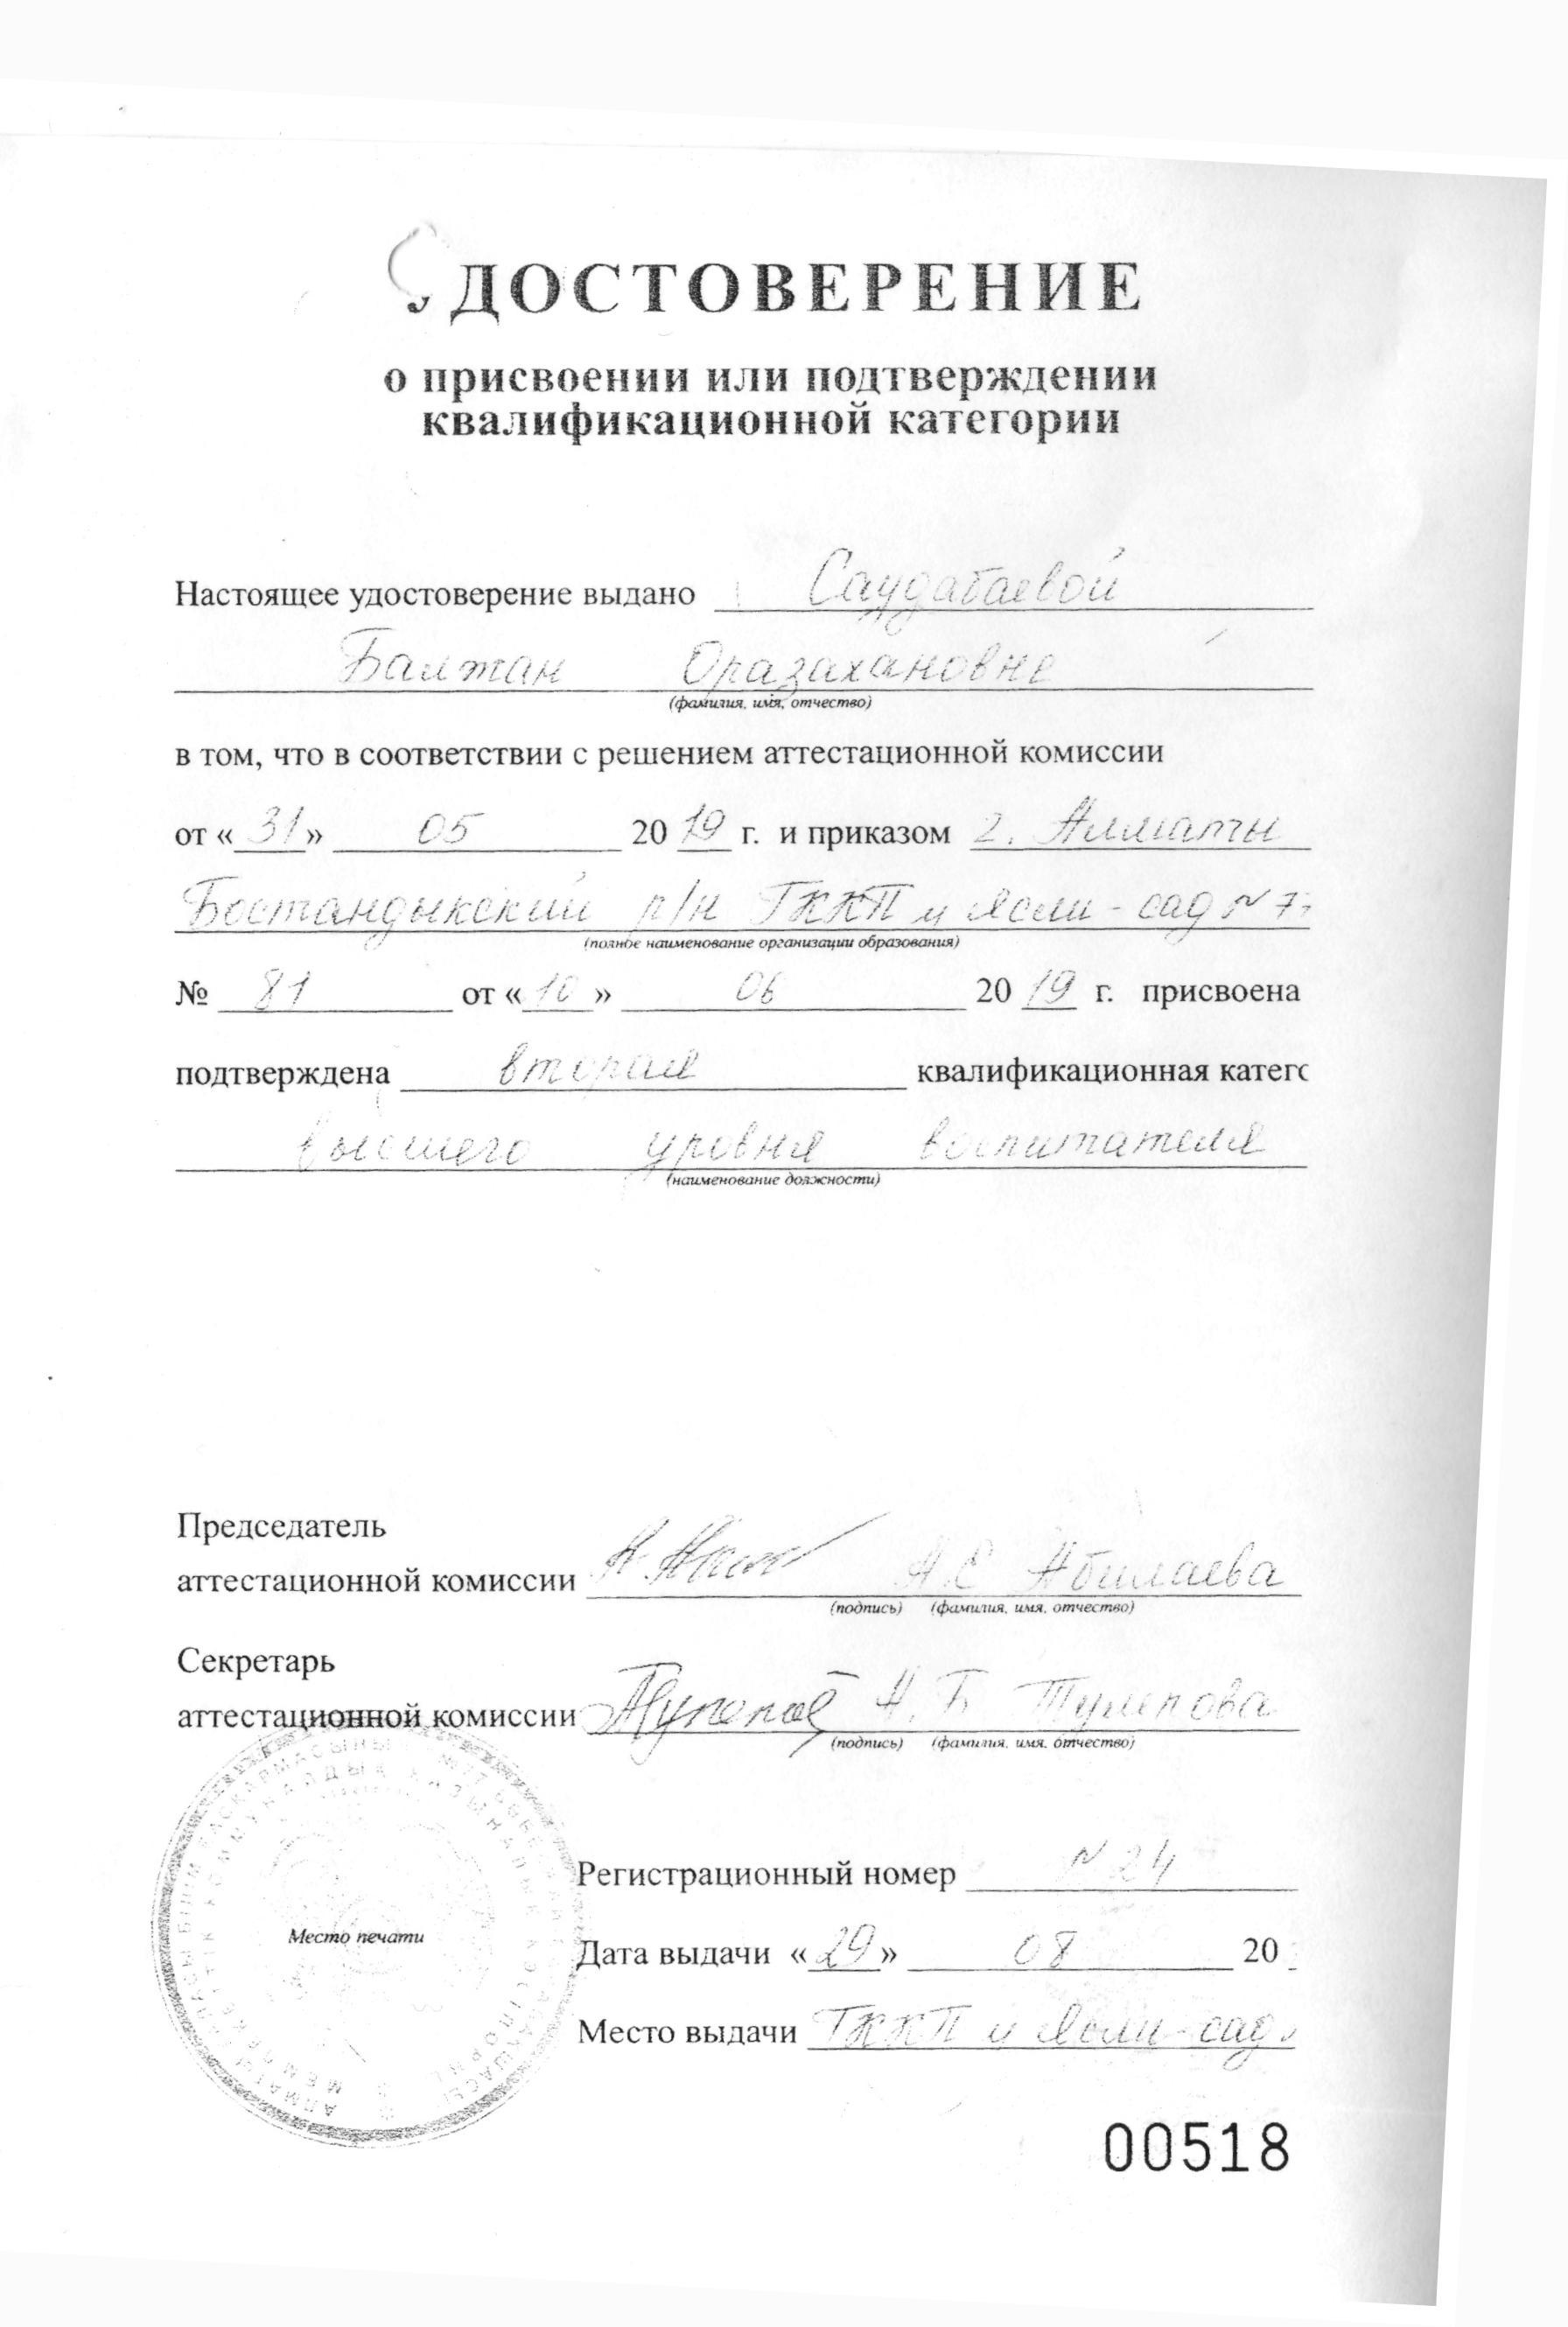 УДОСТОВЕРЕНИЕ
о присвоении или подтверждении
квалификационной категории
Настоящее удостоверение выдано Саудабаевой
Балжан Оразахановне
(фамилия, имя, отчество)
в том, что в соответствии с решением аттестационной комиссии
от «31» 05 2019 г. и приказом г. Алматы
Бостандыкский р/н ГККП и Ясли-сад №
(полное наименование организации образования)
№ 81 от «10» 06 2019 г. присвоена
подтверждена вторая квалификационная катего
высшего уровня воспитателя
(наименование должности)
Председатель
аттестационной комиссии А.С Абилаева
(подпись) (фамилия, имя, отчество)
Секретарь
аттестационной комиссии А.Б Тулепова
(подпись) (фамилия, имя, отчество)
Регистрационный номер №24
Место печати
Дата выдачи «29» 08 20
Место выдачи ГККП и Ясли-сад
00518